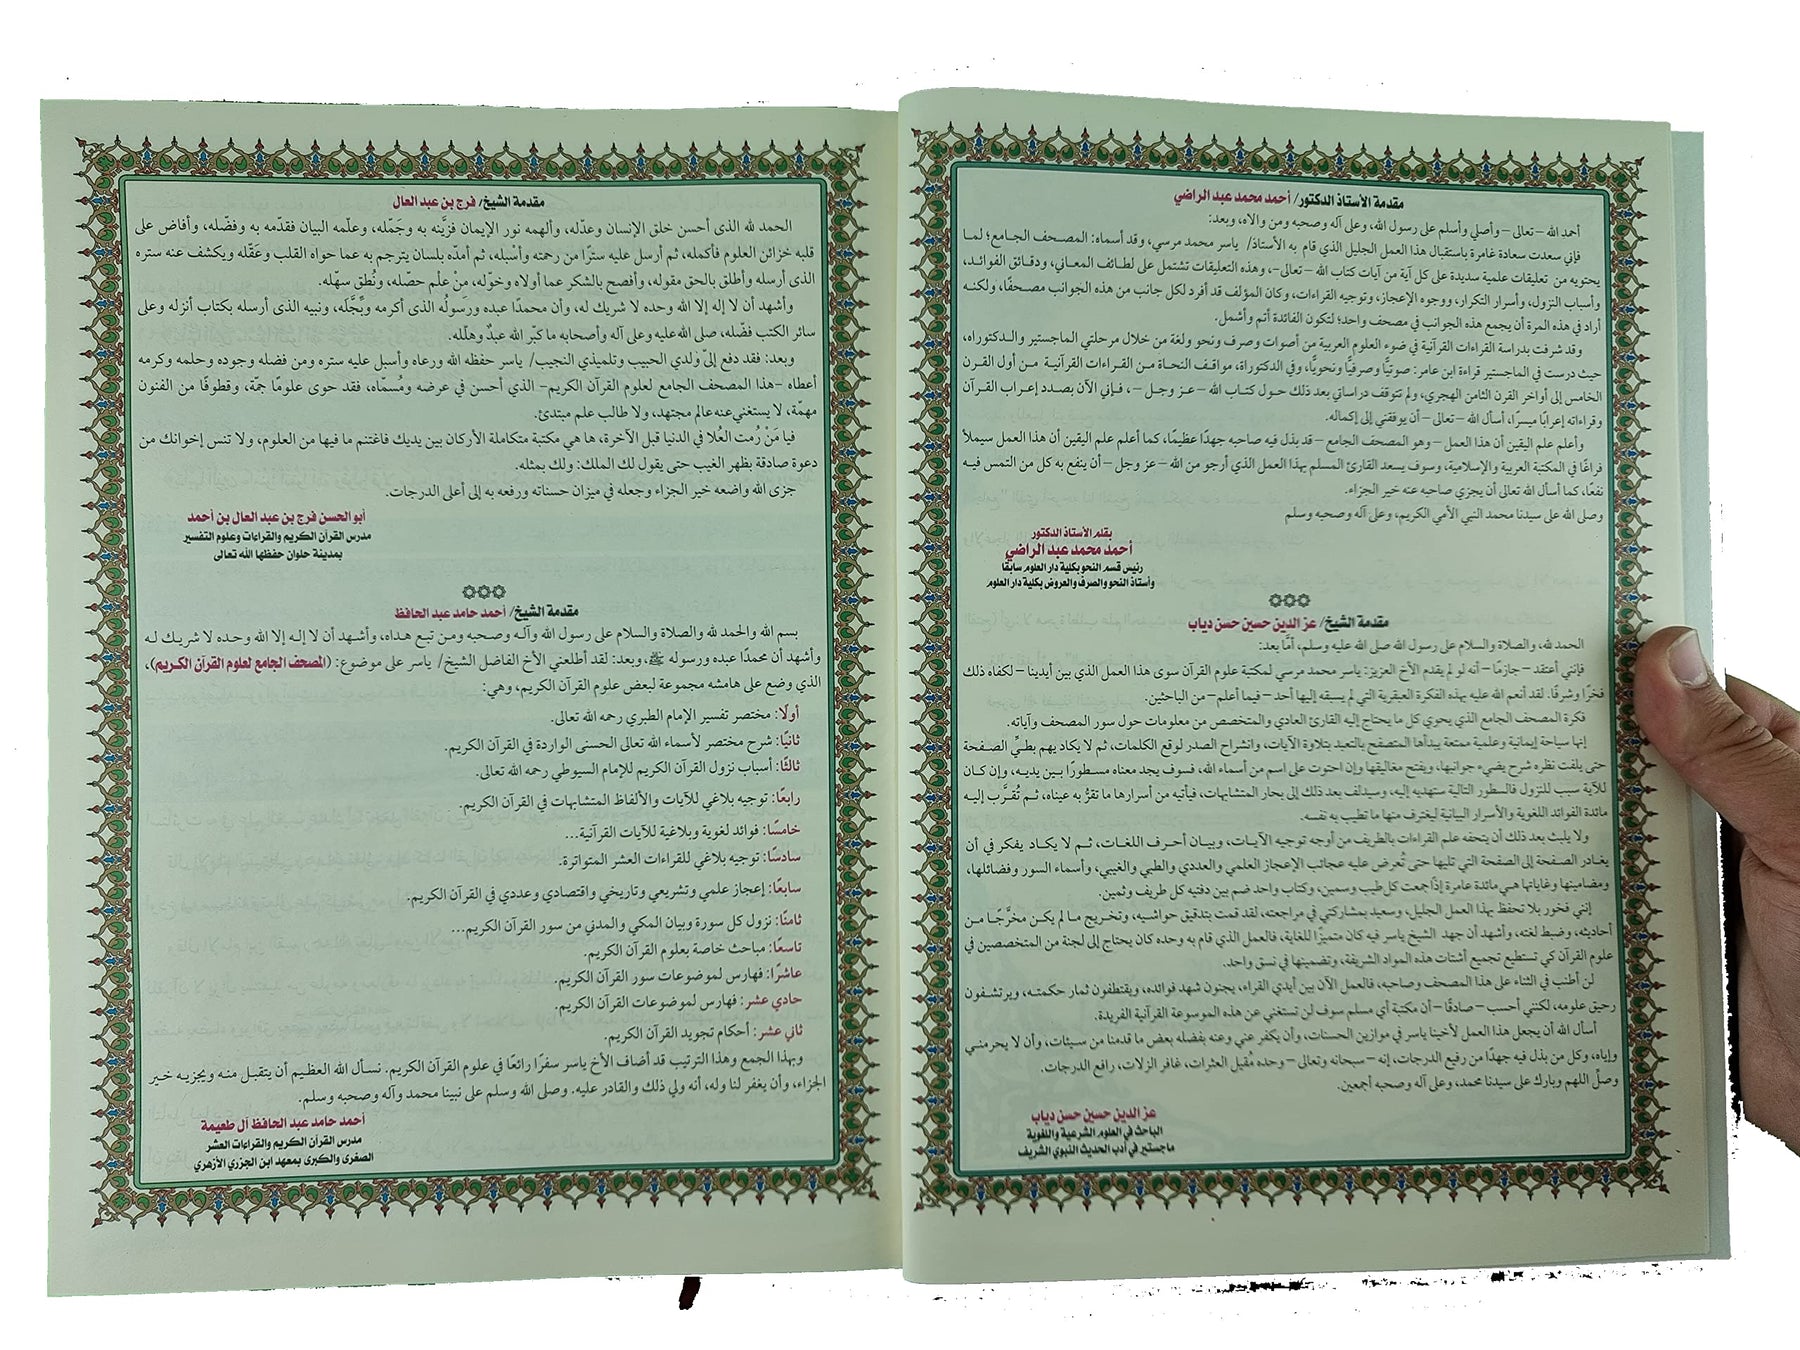 مقدمة الأستاذ الدكتور/ أحمد محمد عبد الراضي
أحمد الله –تعالى– وأصلي وأسلم على رسول الله، وعلى آله وصحبه ومن والاه، وبعد:
فإني سعدت سعادة غامرة باستقبال هذا العمل الجليل الذي قام به الأستاذ/ ياسر محمد مرسي، وقد أسماه: المصحف الجامع؛ لما
يحتويه من تعليقات علمية سديدة على كل آية من آيات كتاب الله –تعالى–، وهذه التعليقات تشتمل على لطائف المعاني، ودقائق الفوائد،
وأسباب النزول، وأسرار التكرار، ووجوه الإعجاز، وتوجيه القراءات، وكان المؤلف قد أفرد لكل جانب من هذه الجوانب مصحفًا، ولكنه
أراد في هذه المرة أن يجمع هذه الجوانب في مصحف واحد؛ لتكون الفائدة أتم وأشمل.
وقد شرفت بدراسة القراءات القرآنية في ضوء العلوم العربية من أصوات وصرف ونحو ولغة من خلال مرحلتي الماجستير والدكتوراه،
حيث درست في الماجستير قراءة ابن عامر: صوتيًّا وصرفيًّا ونحويًّا، وفي الدكتوراة، مواقف النحاة من القراءات القرآنية من أول القرن
الخامس إلى أواخر القرن الثامن الهجري، ولم تتوقف دراساتي بعد ذلك حول كتاب الله –عز وجل–، فإني الآن بصدد إعراب القرآن
وقراءاته إعرابًا ميسرا، أسأل الله –تعالى– أن يوفقني إلى إكماله.
وأعلم علم اليقين أن هذا العمل –وهو المصحف الجامع– قد بذل فيه صاحبه جهدًا عظيمًا، كما أعلم علم اليقين أن هذا العمل سيملأ
فراغًا في المكتبة العربية والإسلامية، وسوف يسعد القارئ المسلم بهذا العمل الذي أرجو من الله –عز وجل– أن ينفع به كل من التمس فيه
نفعًا، كما أسأل الله تعالى أن يجزي صاحبه عنه خير الجزاء.
وصلى الله على سيدنا محمد النبي الأمي الكريم، وعلى آله وصحبه وسلم
بقلم الأستاذ الدكتور
أحمد محمد عبد الراضي
رئيس قسم النحو بكلية دار العلوم سابقًا
وأستاذ النحو والصرف والعروض بكلية دار العلوم
مقدمة الشيخ/ عز الدين حسين حسن دياب
الحمد لله، والصلاة والسلام على رسول الله صلى الله عليه وسلم، أمَّا بعد:
فإنني أعتقد –جازمًا– أنه لو لم يقدم الأخ العزيز: ياسر محمد مرسي لمكتبة علوم القرآن سوى هذا العمل الذي بين أيدينا –لكفاه ذلك
فخرًا وشرفًا. لقد أنعم الله عليه بهذه الفكرة العبقرية التي لم يسبقه إليها أحد –فيما أعلم– من الباحثين.
فكرة المصحف الجامع الذي يحوي كل ما يحتاج إليه القارئ العادي والمتخصص من معلومات حول سور المصحف وآياته.
إنها سياحة إيمانية وعلمية ممتعة يبدأها المتصفح بالتعبد بتلاوة الآيات، وانشراح الصدر لوقع الكلمات، ثم لا يكاد يهم بطيِّ الصفحة
حتى يلفت نظره شرح يضيء جوانبها، ويفتح مغاليقها وإن احتوت على اسم من أسماء الله، فسوف يجد معناه مسطورًا بين يديه، وإن كان
للآية سبب للنزول فالسطور التالية ستهديه إليه، وسيدلف بعد ذلك إلى بحار المتشابهات، فيأتيه من أسرارها ما تقرُّ به عيناه، ثم تُقرَّب إليه
مائدة الفوائد اللغوية والأسرار البيانية ليغترف منها ما تطيب به نفسه.
ولا يلبث بعد ذلك أن يتحفه علم القراءات بالطريف من أوجه توجيه الآيات، وبيان أحرف اللغات، ثم لا يكاد يفكر في أن
يغادر الصفحة إلى الصفحة التي تليها حتى تُعرض عليه عجائب الإعجاز العلمي والعددي والطبي والغيبي، وأسماء السور وفضائلها،
ومضامينها وغاياتها هي مائدة عامرة إذًا جمعت كل طيب وسمين، وكتاب واحد ضم بين دفتيه كل طريف وثمين.
إنني فخور بلا تحفظ بهذا العمل الجليل، وسعيد بمشاركتي في مراجعته، لقد قمت بتدقيق حواشيه، وتخريج ما لم يكن مخرَّجًا من
أحاديثه، وضبط لغته، وأشهد أن جهد الشيخ ياسر فيه كان متميزًا للغاية، فالعمل الذي قام به وحده كان يحتاج إلى لجنة من المتخصصين في
علوم القرآن كي تستطيع تجميع أشتات هذه المواد الشريفة، وتضمينها في نسق واحد.
لن أطنب في الثناء على هذا المصحف وصاحبه، فالعمل الآن بين أيدي القراء، يجنون شهد فوائده، ويقتطفون ثمار حكمته، ويرتشفون
رحيق علومه، لكنني أحسب –صادقًا– أن مكتبة أي مسلم سوف لن تستغني عن هذه الموسوعة القرآنية الفريدة.
أسأل الله أن يجعل هذا العمل لأخينا ياسر في موازين الحسنات، وأن يكفر عني وعنه بفضله بعض ما قدمنا من سيئات، وأن لا يحرمني
وإياه، وكل من بذل فيه جهدًا من رفيع الدرجات، إنه –سبحانه وتعالى– وحده مُقيل العثرات، غافر الزلات، رافع الدرجات.
وصلِّ اللهم وبارك على سيدنا محمد، وعلى آله وصحبه أجمعين.
عز الدين حسين حسن دياب
الباحث في العلوم الشرعية واللغوية
ماجستير في أدب الحديث النبوي الشريف
مقدمة الشيخ/ فرج بن عبد العال
الحمد لله الذى أحسن خلق الإنسان وعدّله، وألهمه نور الإيمان فزيَّنه به وجَمّله، وعلّمه البيان فقدّمه به وفضّله، وأفاض على
قلبه خزائن العلوم فأكمله، ثم أرسل عليه سترًا من رحمته وأسْبله، ثم أمدّه بلسان يترجم به عما حواه القلب وعَقّله ويكشف عنه ستره
الذى أرسله وأطلق بالحق مقوله، وأفصح بالشكر عما أولاه وخوّله، مِنْ عِلْم حصّله، ونُطق سهّله.
وأشهد أن لا إله إلا الله وحده لا شريك له، وأن محمدًا عبده ورَسولُه الذى أكرمه وبِّجَّله، ونبيه الذى أرسله بكتاب أنزله وعلى
سائر الكتب فضّله، صلى الله عليه وعلى آله وأصحابه ما كبّر الله عبدٌ وهلّله.
وبعد: فقد دفع إلىّ ولدي الحبيب وتلميذي النجيب/ ياسر حفظه الله ورعاه وأسبل عليه ستره ومن فضله وجوده وحلمه وكرمه
أعطاه –هذا المصحف الجامع لعلوم القرآن الكريم– الذي أحسن في عرضه ومُسمّاه، فقد حوى علومًا جمّة، وقطوفًا من الفنون
مهمّة، لا يستغني عنه عالم مجتهد، ولا طالب علم مبتدئ.
فيا مَنْ رُمت العُلا في الدنيا قبل الآخرة، ها هي مكتبة متكاملة الأركان بين يديك فاغتنم ما فيها من العلوم، ولا تنس إخوانك من
دعوة صادقة بظهر الغيب حتى يقول لك الملك: ولك بمثله.
جزى الله واضعه خير الجزاء وجعله في ميزان حسناته ورفعه به إلى أعلى الدرجات.
أبو الحسن فرج بن عبد العال بن أحمد
مدرس القرآن الكريم والقراءات وعلوم التفسير
بمدينة حلوان حفظها الله تعالى
مقدمة الشيخ/ أحمد حامد عبد الحافظ
بسم الله والحمد لله والصلاة والسلام على رسول الله وآله وصحبه ومن تبع هداه، وأشهد أن لا إله إلا الله وحده لا شريك له
وأشهد أن محمدًا عبده ورسوله ﷺ، وبعد: لقد أطلعني الأخ الفاضل الشيخ/ ياسر على موضوع: (المصحف الجامع لعلوم القرآن الكريم)،
الذي وضع على هامشه مجموعة لبعض علوم القرآن الكريم، وهي:
أولًا: مختصر تفسير الإمام الطبري رحمه الله تعالى.
ثانيًا: شرح مختصر لأسماء الله تعالى الحسنى الواردة في القرآن الكريم.
ثالثًا: أسباب نزول القرآن الكريم للإمام السيوطي رحمه الله تعالى.
رابعًا: توجيه بلاغي للآيات والألفاظ المتشابهات في القرآن الكريم.
خامسًا: فوائد لغوية وبلاغية للآيات القرآنية...
سادسًا: توجيه بلاغي للقراءات العشر المتواترة.
سابعًا: إعجاز علمي وتشريعي وتاريخي واقتصادي وعددي في القرآن الكريم.
ثامنًا: نزول كل سورة وبيان المكي والمدني من سور القرآن الكريم...
تاسعًا: مباحث خاصة بعلوم القرآن الكريم.
عاشرًا: فهارس لموضوعات سور القرآن الكريم.
حادي عشر: فهارس لموضوعات القرآن الكريم.
ثاني عشر: أحكام تجويد القرآن الكريم.
وبهذا الجمع وهذا الترتيب قد أضاف الأخ ياسر سفرًا رائعًا في علوم القرآن الكريم. نسأل الله العظيم أن يتقبل منه ويجزيه خير
الجزاء، وأن يغفر لنا وله، أنه ولي ذلك والقادر عليه. وصلى الله وسلم على نبينا محمد وآله وصحبه وسلم.
أحمد حامد عبد الحافظ آل طعيمة
مدرس القرآن الكريم والقراءات العشر
الصغرى والكبرى بمعهد ابن الجزري الأزهري